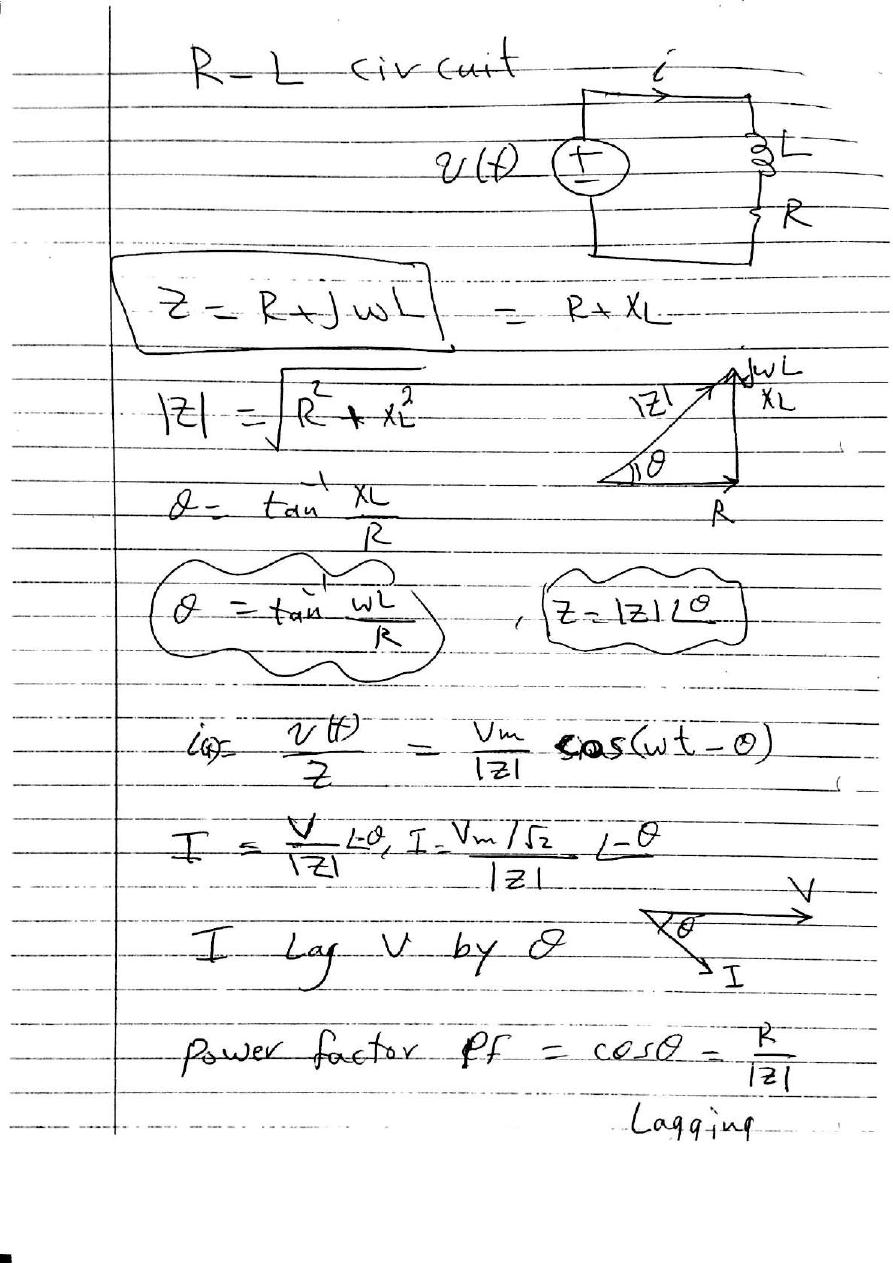 R-L circuit
i
v(t)
+
-
L
R
Z = R+jωL = R+XL
|Z| = √(R² + XL²)
|Z|
jωL
XL
θ
R
θ = tan⁻¹ XL/R
θ = tan⁻¹ ωL/R , Z = |Z| ∠θ
i(t) = v(t)/Z = Vm/|Z| cos(ωt - θ)
I = V/|Z| ∠-θ, I = Vm/√2/|Z| ∠-θ
V
θ
I
I Lag V by θ
power factor Pf = cosθ = R/|Z|
Lagging